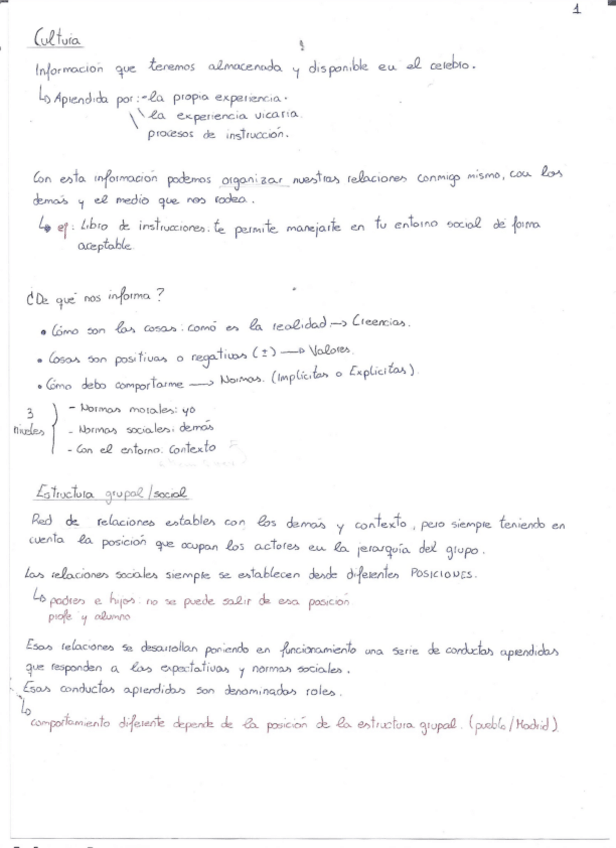 1
Cultura
Información que tenemos almacenada y disponible en el cerebro.
↳ Aprendida por: - la propia experiencia.
\ la experiencia vicaria
\ procesos de instrucción.
Con esta información podemos organizar nuestras relaciones conmigo mismo, con los
demás y el medio que nos rodea.
↳ ej: Libro de instrucciones: te permite manejarte en tu entorno social de forma
aceptable
¿De qué nos informa?
• Cómo son las cosas: como es la realidad → Creencias.
• Cosas son positivas o negativas (±) → Valores.
• Cómo debo comportarme → Normas. (Implícitas o Explícitas).
3 niveles
- Normas morales: yo
- Normas sociales: demás
- Con el entorno. Contexto
Estructura grupal/social
Red de relaciones estables con los demás y contexto, pero siempre teniendo en
cuenta la posición que ocupan los actores en la jerarquía del grupo.
Las relaciones sociales siempre se establecen desde diferentes POSICIONES.
↳ padres e hijos: no se puede salir de esa posición
profe y alumno
Esas relaciones se desarrollan poniendo en funcionamiento una serie de conductas aprendidas
que responden a las expectativas y normas sociales.
Esas conductas aprendidas son denominadas roles.
↳
comportamiento diferente depende de la posición de la estructura grupal. (pueblo/Madrid)